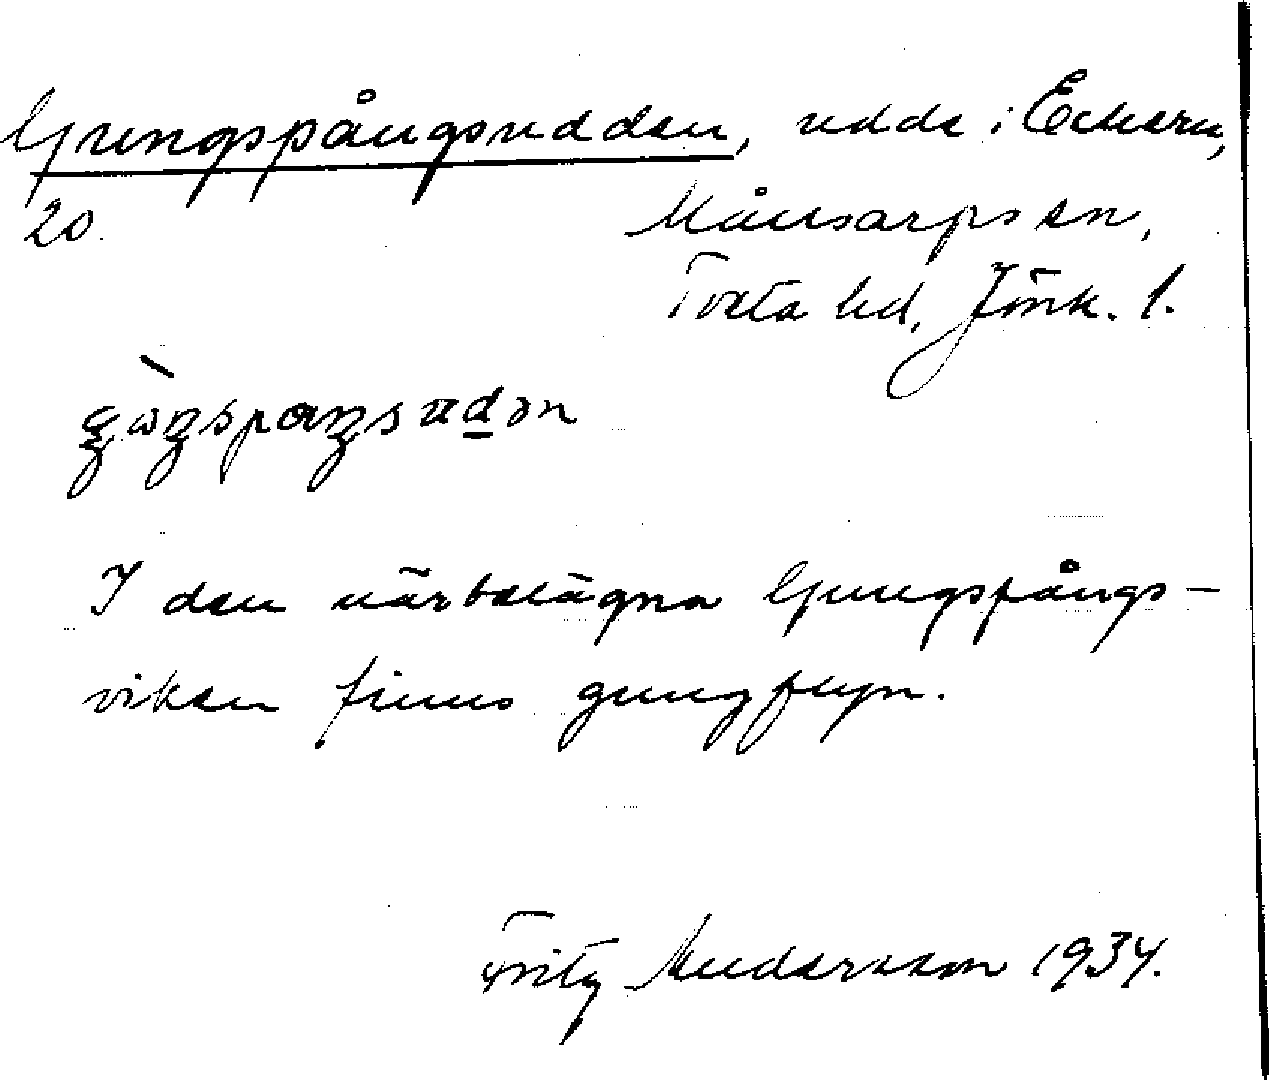 Ljungspångsudden, udde i Eckern,
20. Månsarps sn,
Tveta hd, Jönk. l.
I den närbelägna Ljungspångs-
viken finns gungflyn.
Fritz Andersson 1934.